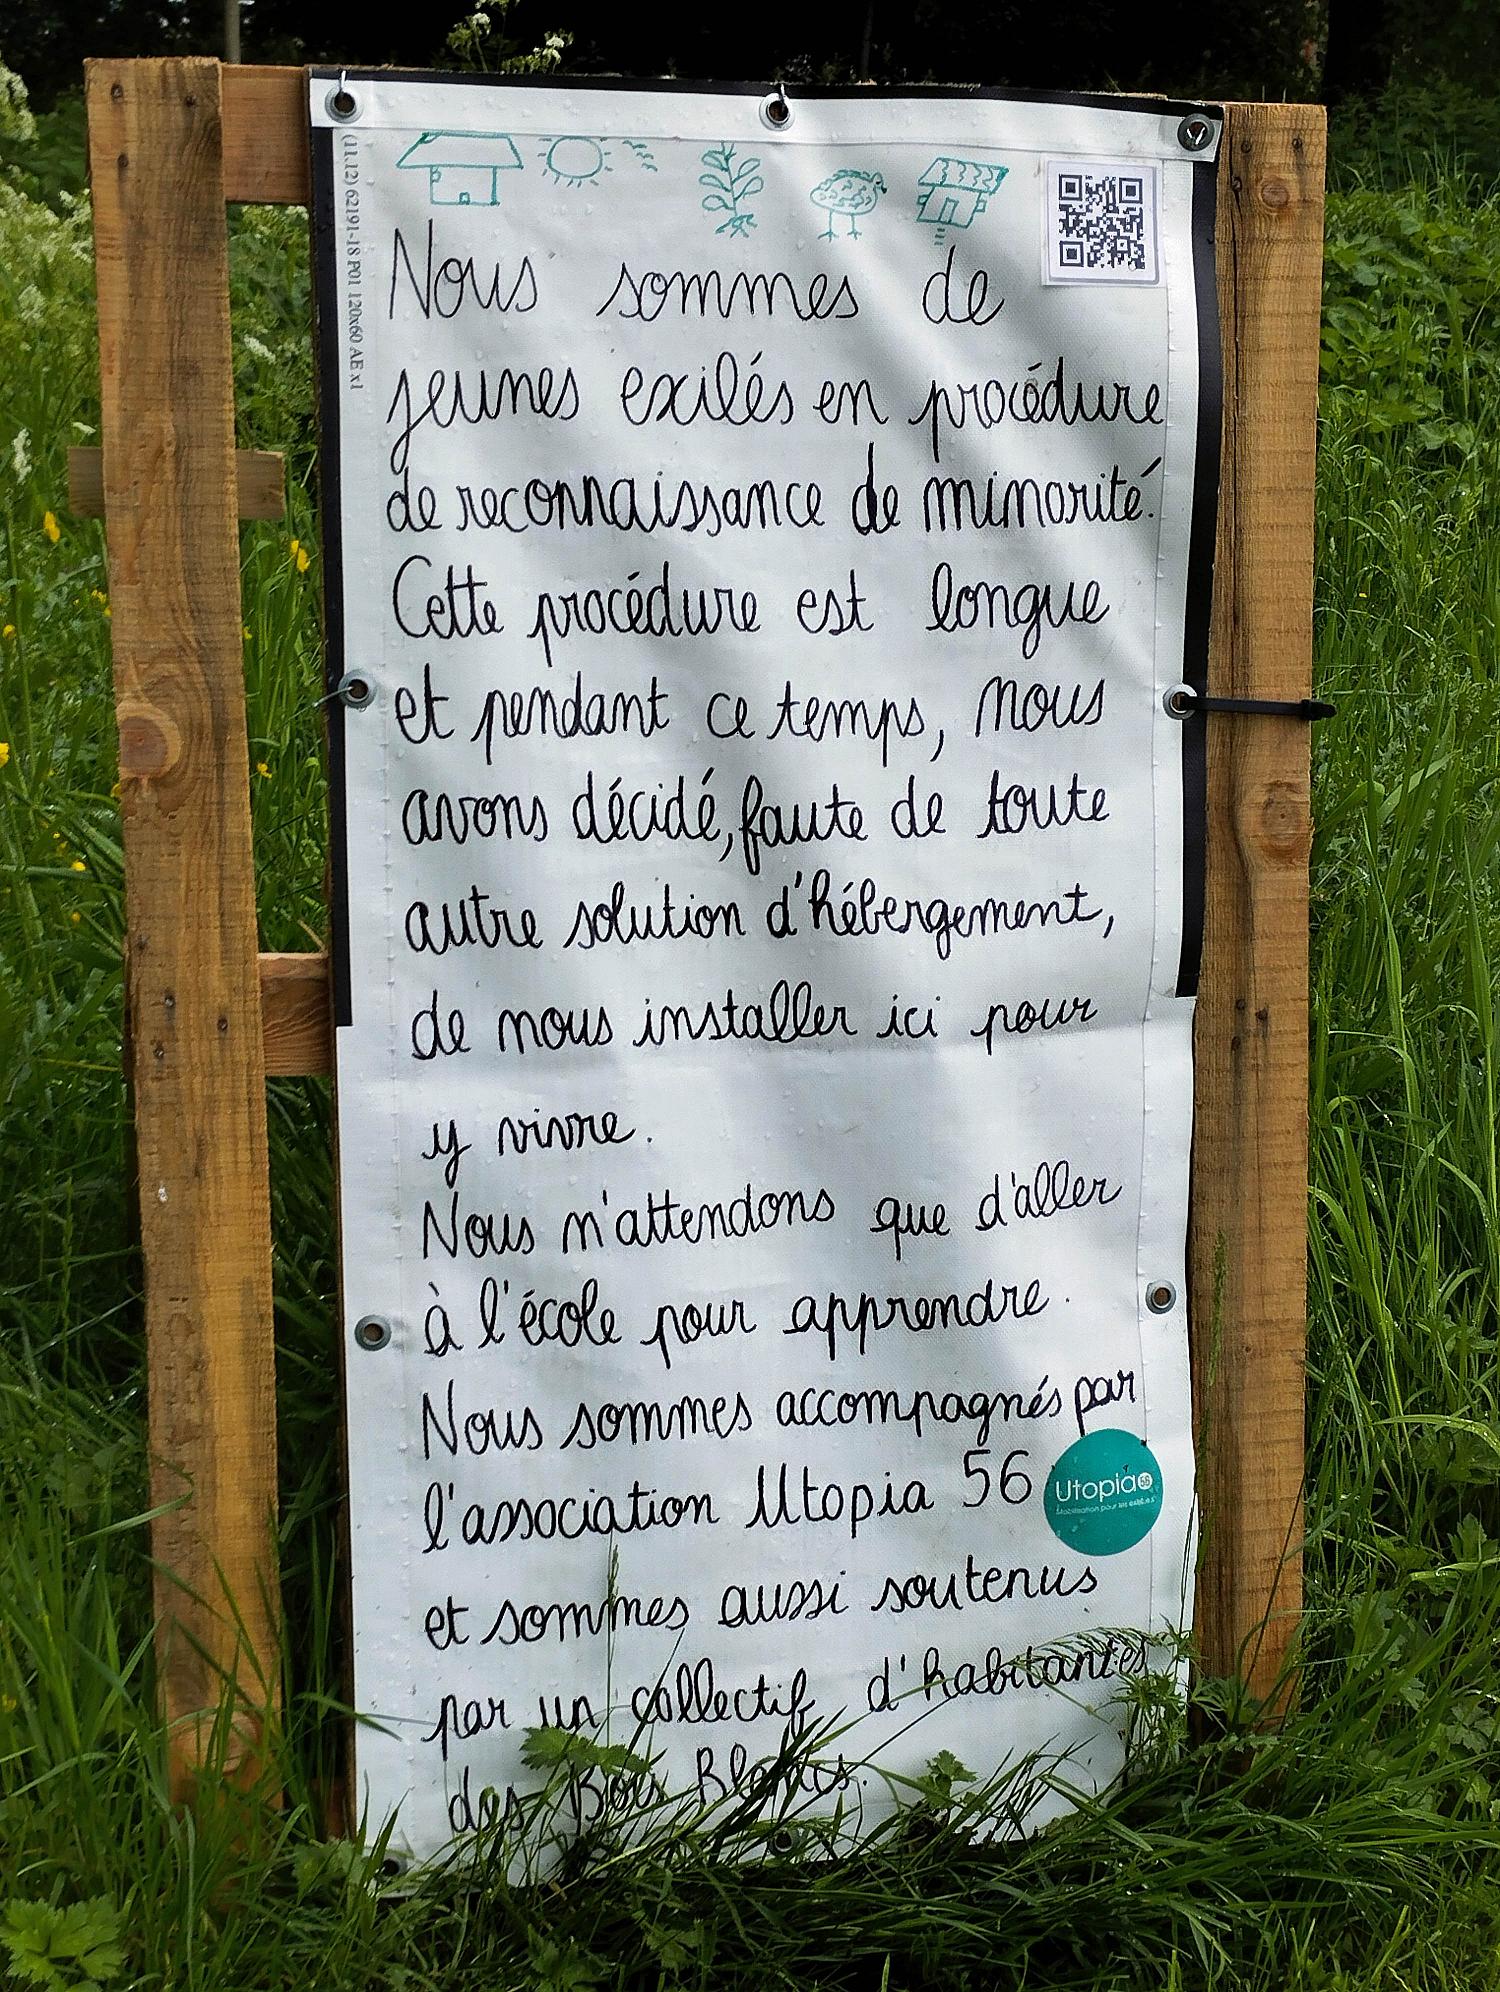 (11.12) 62191-18 P01 120x60 AE x1
Nous sommes de
jeunes exilés en procédure
de reconnaissance de minorité.
Cette procédure est longue
et pendant ce temps, nous
avons décidé, faute de toute
autre solution d'hébergement,
de nous installer ici pour
y vivre.
Nous n'attendons que d'aller
à l'école pour apprendre.
Nous sommes accompagnés par
l'association Utopia 56
Utopia 56
Mobilisation pour les exilé·e·s
et sommes aussi soutenus
par un collectif d'habitantes
des Bois Blancs.